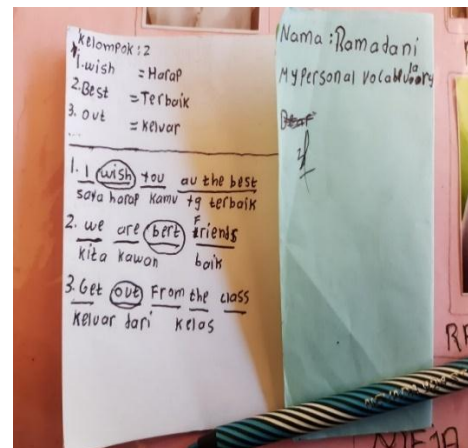 Kelompok: 2
1. wish = Harap
2. Best = Terbaik
3. out = keluar
...
1. I wish you au the best
saya harap kamu yg terbaik
2. we are bert Friends
kita kawan baik
3. Get out From the class
keluar dari kelas
Nama : Ramadani
My personal vocabulary